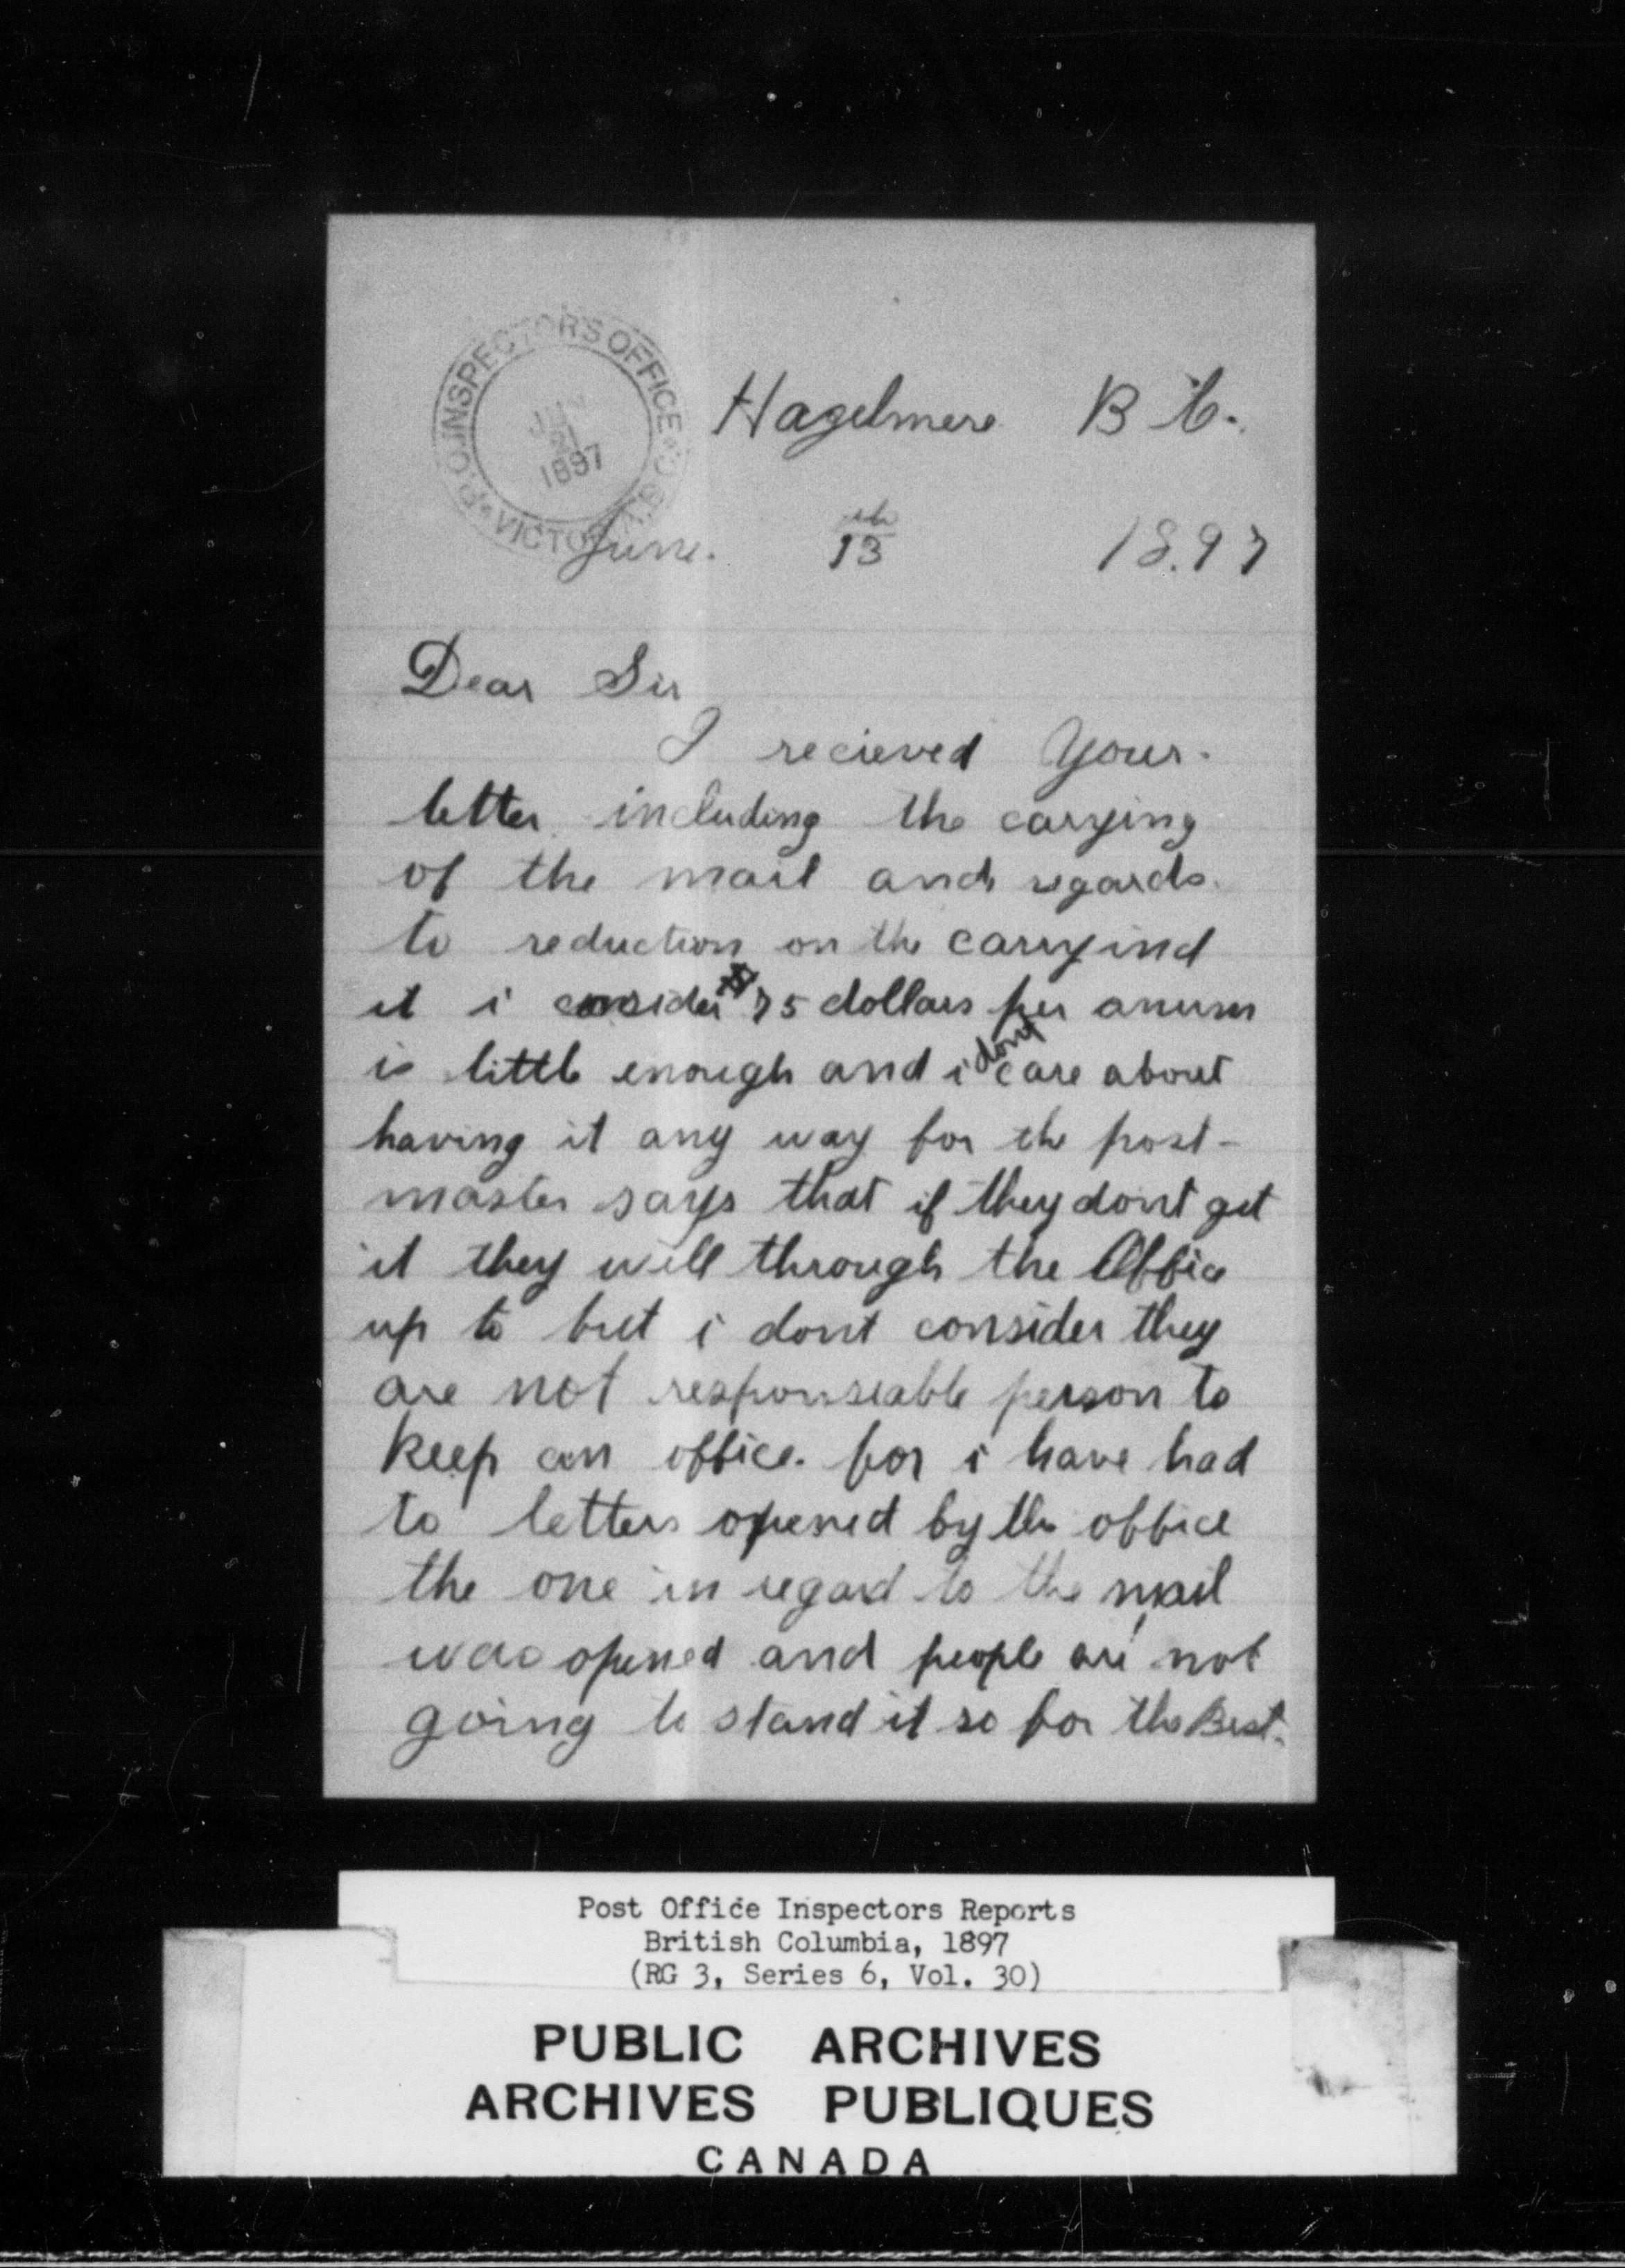 P.O. INSPECTOR'S OFFICE
VICTORIA B.C.
1897
Hazelmere B C.
June. 13th 1897
Dear Sir
I recieved Your.
letter including the carrying
of the mail and regards.
to reduction on the carryind
it i consider $ 75 dollars per anum
is little enough and i dont care about
having it any way for the post-
master says that if they dont get
it they will through the Office
up to but i dont consider they
are not responseable person to
keep an office. for i have had
to letters opened by the office
the one in regard to the mail
was opened and people are not
going to stand it so for the Best.
Post Office Inspectors Reports
British Columbia, 1897
(RG 3, Series 6, Vol. 30)
PUBLIC ARCHIVES
ARCHIVES PUBLIQUES
CANADA